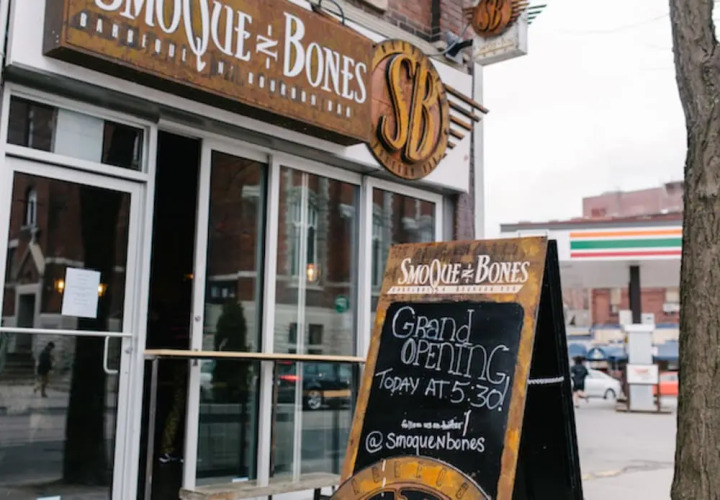 SMOQUE N BONES
BARBEQUE N' BOURBON BAR
SB
SB
SMOQUE N BONES
BARBEQUE N' BOURBON BAR
GRAND
OPENING
TODAY AT 5:30!
follow us on twitter!
@SMOQUENBONES